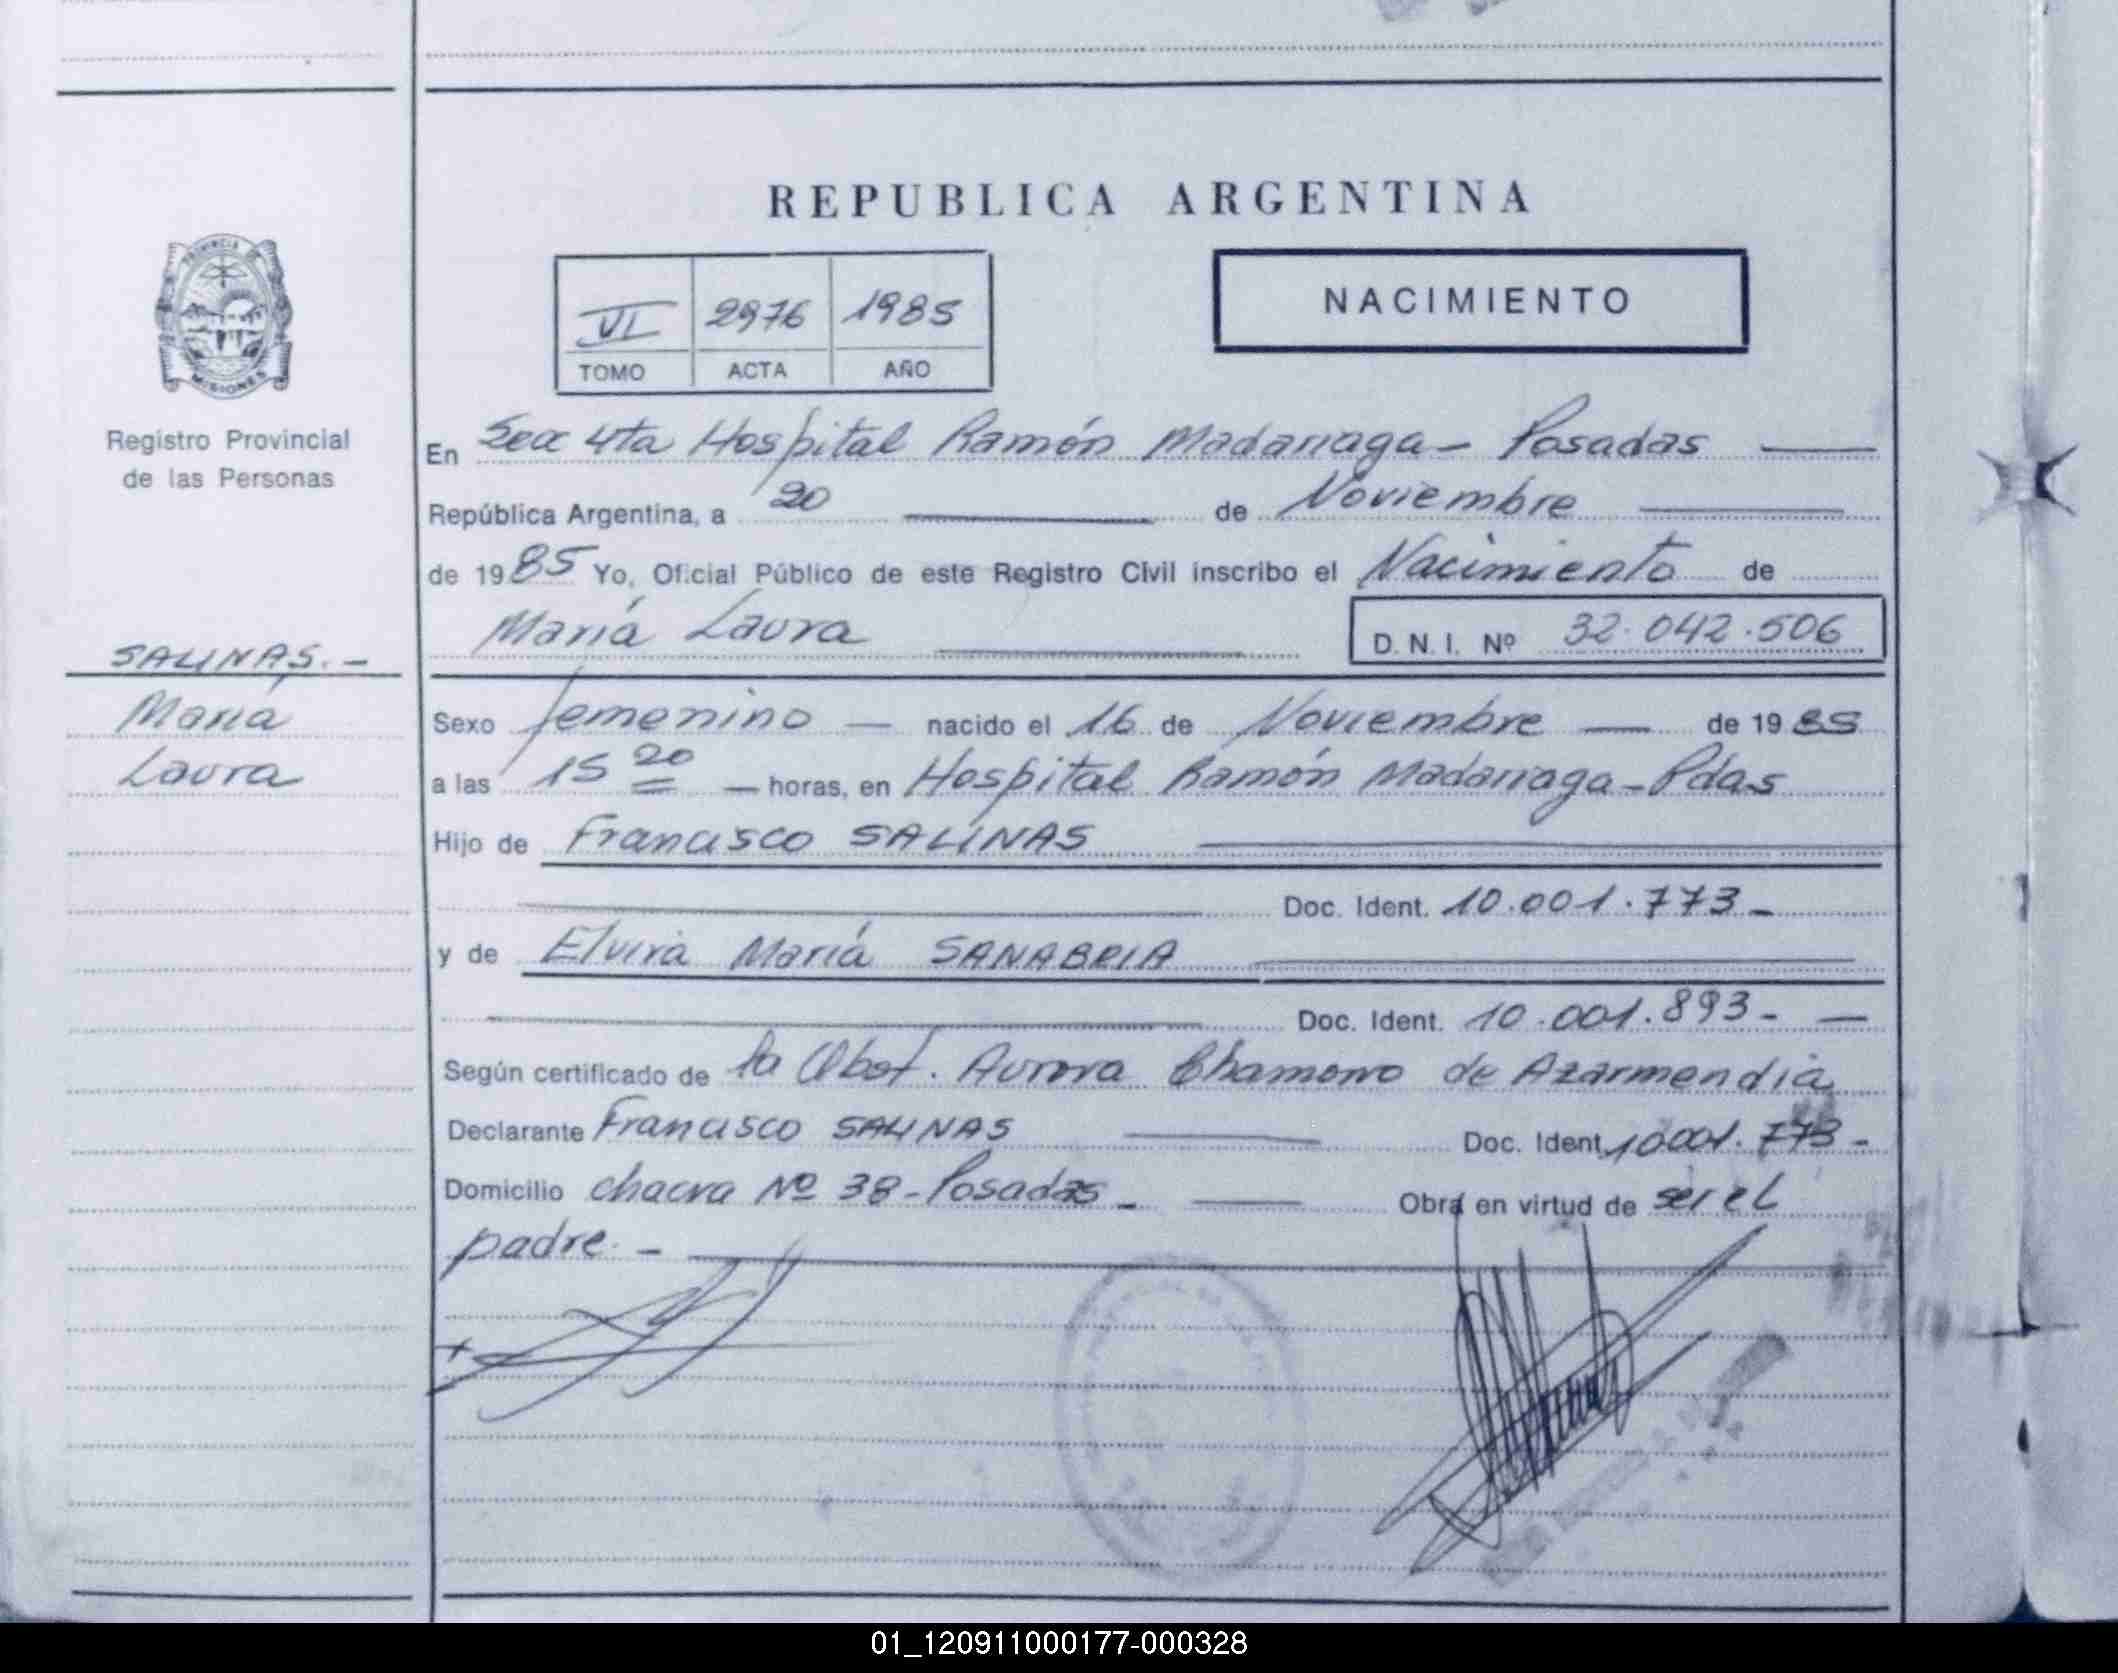 REPUBLICA ARGENTINA
PROVINCIA DE
MISIONES
Registro Provincial
de las Personas
VI 2976 1985
TOMO ACTA AÑO
NACIMIENTO
En Secc 4ta Hospital Ramón Madariaga - Posadas
República Argentina, a 20 de Noviembre
de 1985 Yo, Oficial Público de este Registro Civil inscribo el Nacimiento de
María Laura D. N. I. Nº 32.042.506
SALINAS.-
María
Laura
Sexo femenino — nacido el 16 de Noviembre — de 1985
a las 15 20 — horas, en Hospital Ramón Madariaga - Pdas
Hijo de Francisco SALINAS
Doc. Ident. 10.001.773-
y de Elvira María SANABRIA
Doc. Ident. 10.001.893-
Según certificado de la Obst. Aurora Chamorro de Azarmendia
Declarante Francisco SALINAS Doc. Ident. 10001.773-
Domicilio chacra Nº 38 - Posadas - Obra en virtud de ser el
padre. -
01_120911000177-000328